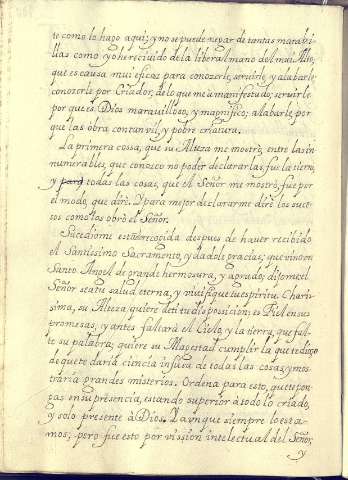 te como lo hago aqui; y no se puede negar de tantas marabi-
llas como yo he recivido de la liberal mano del mui Alto,
que es causa mui eficas para conozerle, servirle, y alabarle;
conozerle por Criador, de lo que me à manifestado; servirle
por que es Dios maravilloso, y magnifico; alabarle, por
que las obra con tan vil, y pobre criatura.
La primera cossa, que su Alteza me mostrò, entre las in
numerables, que conozco no poder declararlas, fue la tierra,
y para todas las cosas, que el Señor me mostrò, fue por
el modo, que dirè. Y para mejor declararme dirè los suces-
sos como los obrò el Señor.
Sucediome estando recogida despues de haver recibido
el Santissimo Sacramento, y dadole gracias; que vino un
Santo Angel de grande hermosura, y agrado; dijome, el
Señor sea tu salud eterna, y vivifique tu espiritu. Charis-
sima, su Alteza quiere de ti tu disposicion; es Fiel en sus
promesas, y antes faltarà el Cielo, y la tierra, que fal-
te su palabra; quiere su Magestad cumplir la que te dijo
de que te daria ciencia infusa de todas las cosas, y mos-
traria grandes misterios. Ordena para esto, que te pon-
gas en su presencia, estando superior à todo lo criado,
y solo presente à Dios. Y aunque siempre lo esta-
mos; pero fue esto por vission intelectual del Señor,
y